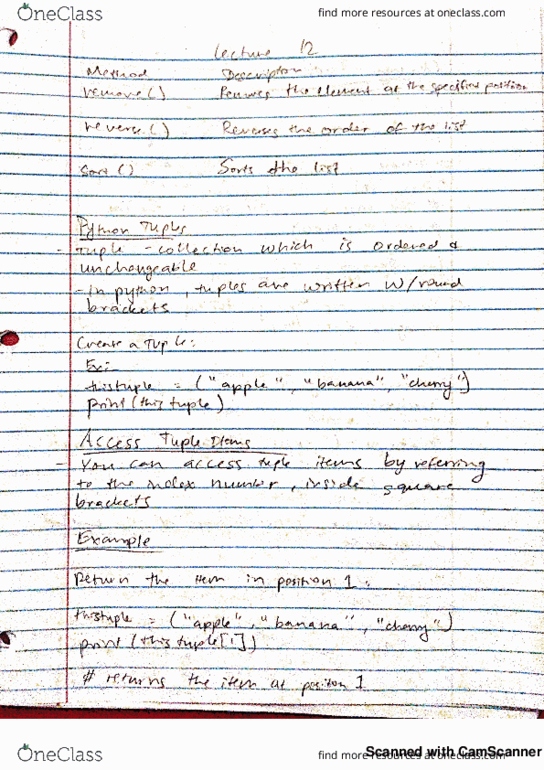 OneClass
find more resources at oneclass.com
Lecture 12
Method Description
remove() Removes the element at the specified position
reverse() Reverses the order of the list
sort() Sorts the list
Python Tuples
- Tuple - collection which is ordered &
unchangeable
- In python, tuples are written w/round
brackets
Create a Tuple:
Ex:
thistuple = ("apple", "banana", "cherry")
print(thistuple)
Access Tuple Items
- You can access tuple items by referring
to the index number, inside square
brackets
Example
Return the item in position 1:
thistuple = ("apple", "banana", "cherry")
print(thistuple[1])
# returns the item at position 1
OneClass
find more resources at oneclass.com
Scanned with CamScanner